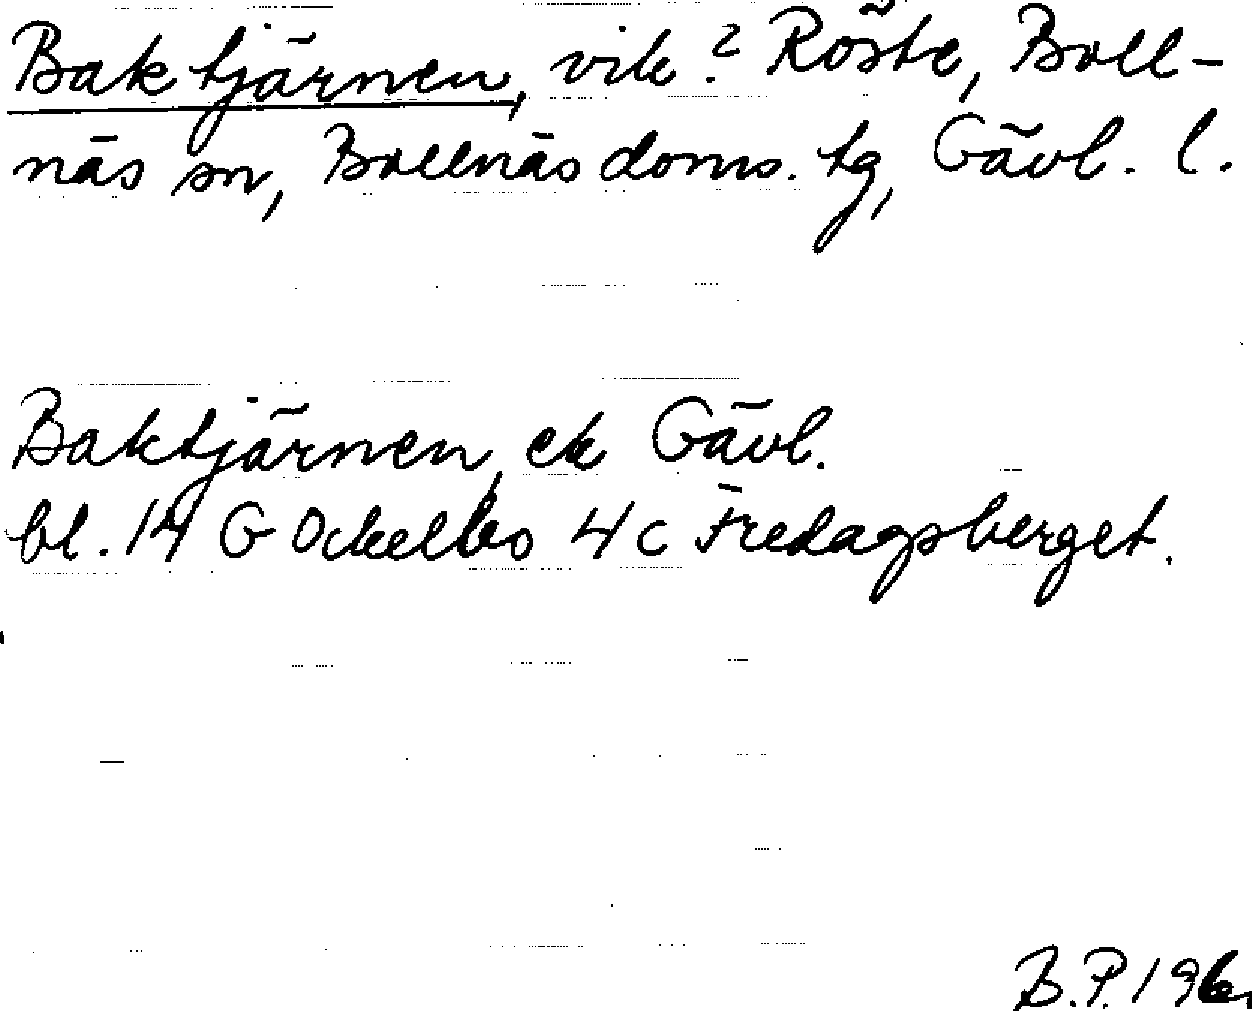 Baktjärnen, vik? Röste, Boll-
näs sn, Bollnäs doms. tg, Gävl. l.
Baktjärnen, ek Gävl.
bl. 14 G Ockelbo 4 c Fredagsberget.
B.P. 196